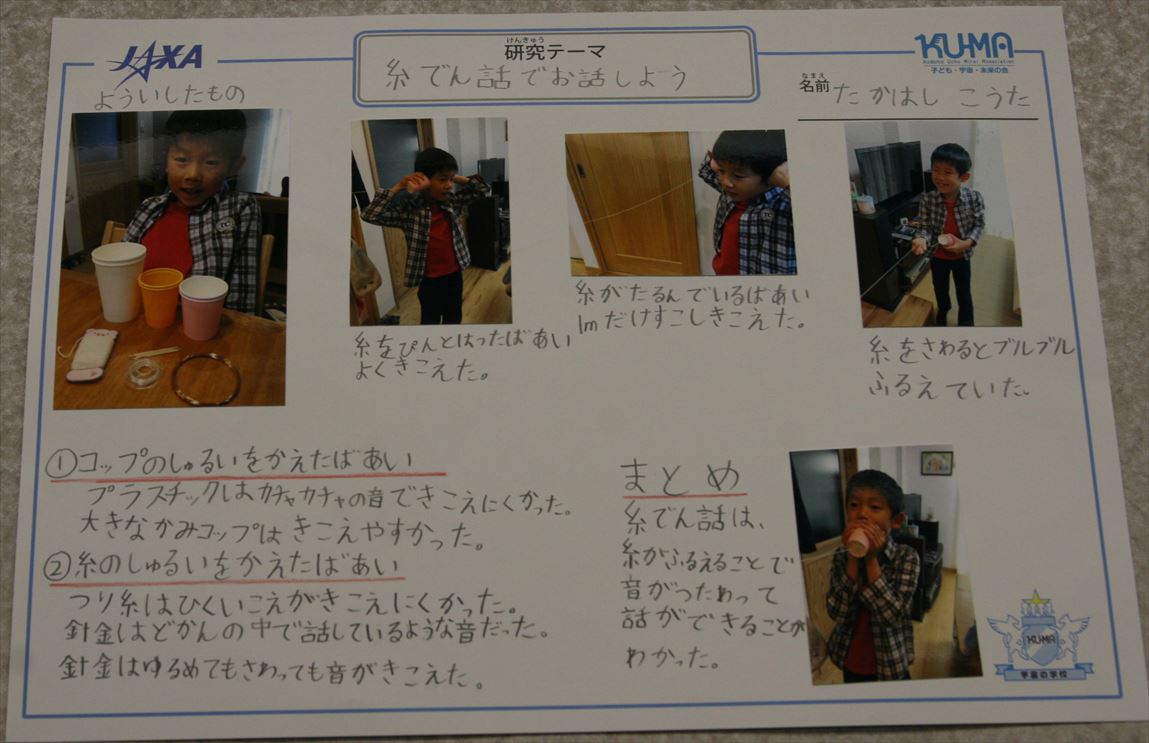 JAXA
けんきゅう
研究テーマ
糸でん話でお話しよう
KU-MA
Kodomo Uchu Mirai Association
子ども・宇宙・未来の会
なまえ
名前 たかはし こうた
よういしたもの
糸をぴんとはったばあい
よくきこえた。
糸がたるんでいるばあい
1mだけすこしきこえた。
糸をさわるとブルブル
ふるえていた。
①コップのしゅるいをかえたばあい
プラスチックはカチャカチャの音できこえにくかった。
大きなかみコップはきこえやすかった。
②糸のしゅるいをかえたばあい
つり糸はひくいこえがきこえにくかった。
針金はどかんの中で話しているような音だった。
針金はゆるめてもさわっても音がきこえた。
まとめ
糸でん話は、
糸がふるえることで
音がつたわって
話ができることが
わかった。
KUMA
宇宙の学校